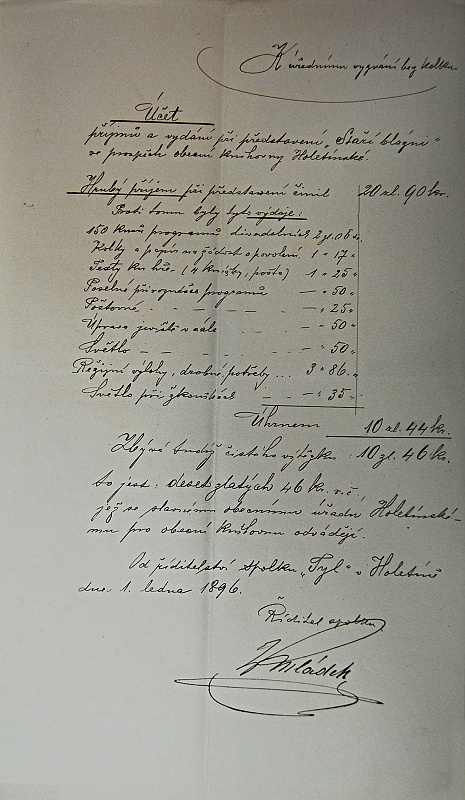 K úřednímu vyzvání bez kolku.
Účet
příjmů a vydání při představení „Staří blázni“
ve prospěch obecní knihovny Holetínské.
Hrubý příjem při představení činil 20 zl. 90 kr.
Proti tomu byly tyto výdaje:
150 kusů programů divadelních 2 zl. 06 kr.
Kolky a papír na žádost o povolení 1 " 17 "
Texty ku hře (4 knížky, pošta) 1 " 25 "
Poselné při roznášce programů — " 50 "
Poštovné — " 25 "
Úprava jeviště v sále — " 50 "
Světlo — " 50 "
Režijní výlohy, drobné potřeby ... 3 " 86 "
Světlo při zkouškách — " 35 "
Úhrnem 10 zl. 44 kr.
Zbývá tudíž čistého výtěžku: 10 zl. 46 kr.
to jest: deset zlatých 46 kr. r. č.,
jež se slavnému obecnímu úřadu Holetínské-
mu pro obecní knihovnu odvádějí.
Od ředitelství spolku „Tyl“ v Holetíně
dne 1. ledna 1896.
Ředitel spolku:
Mládek